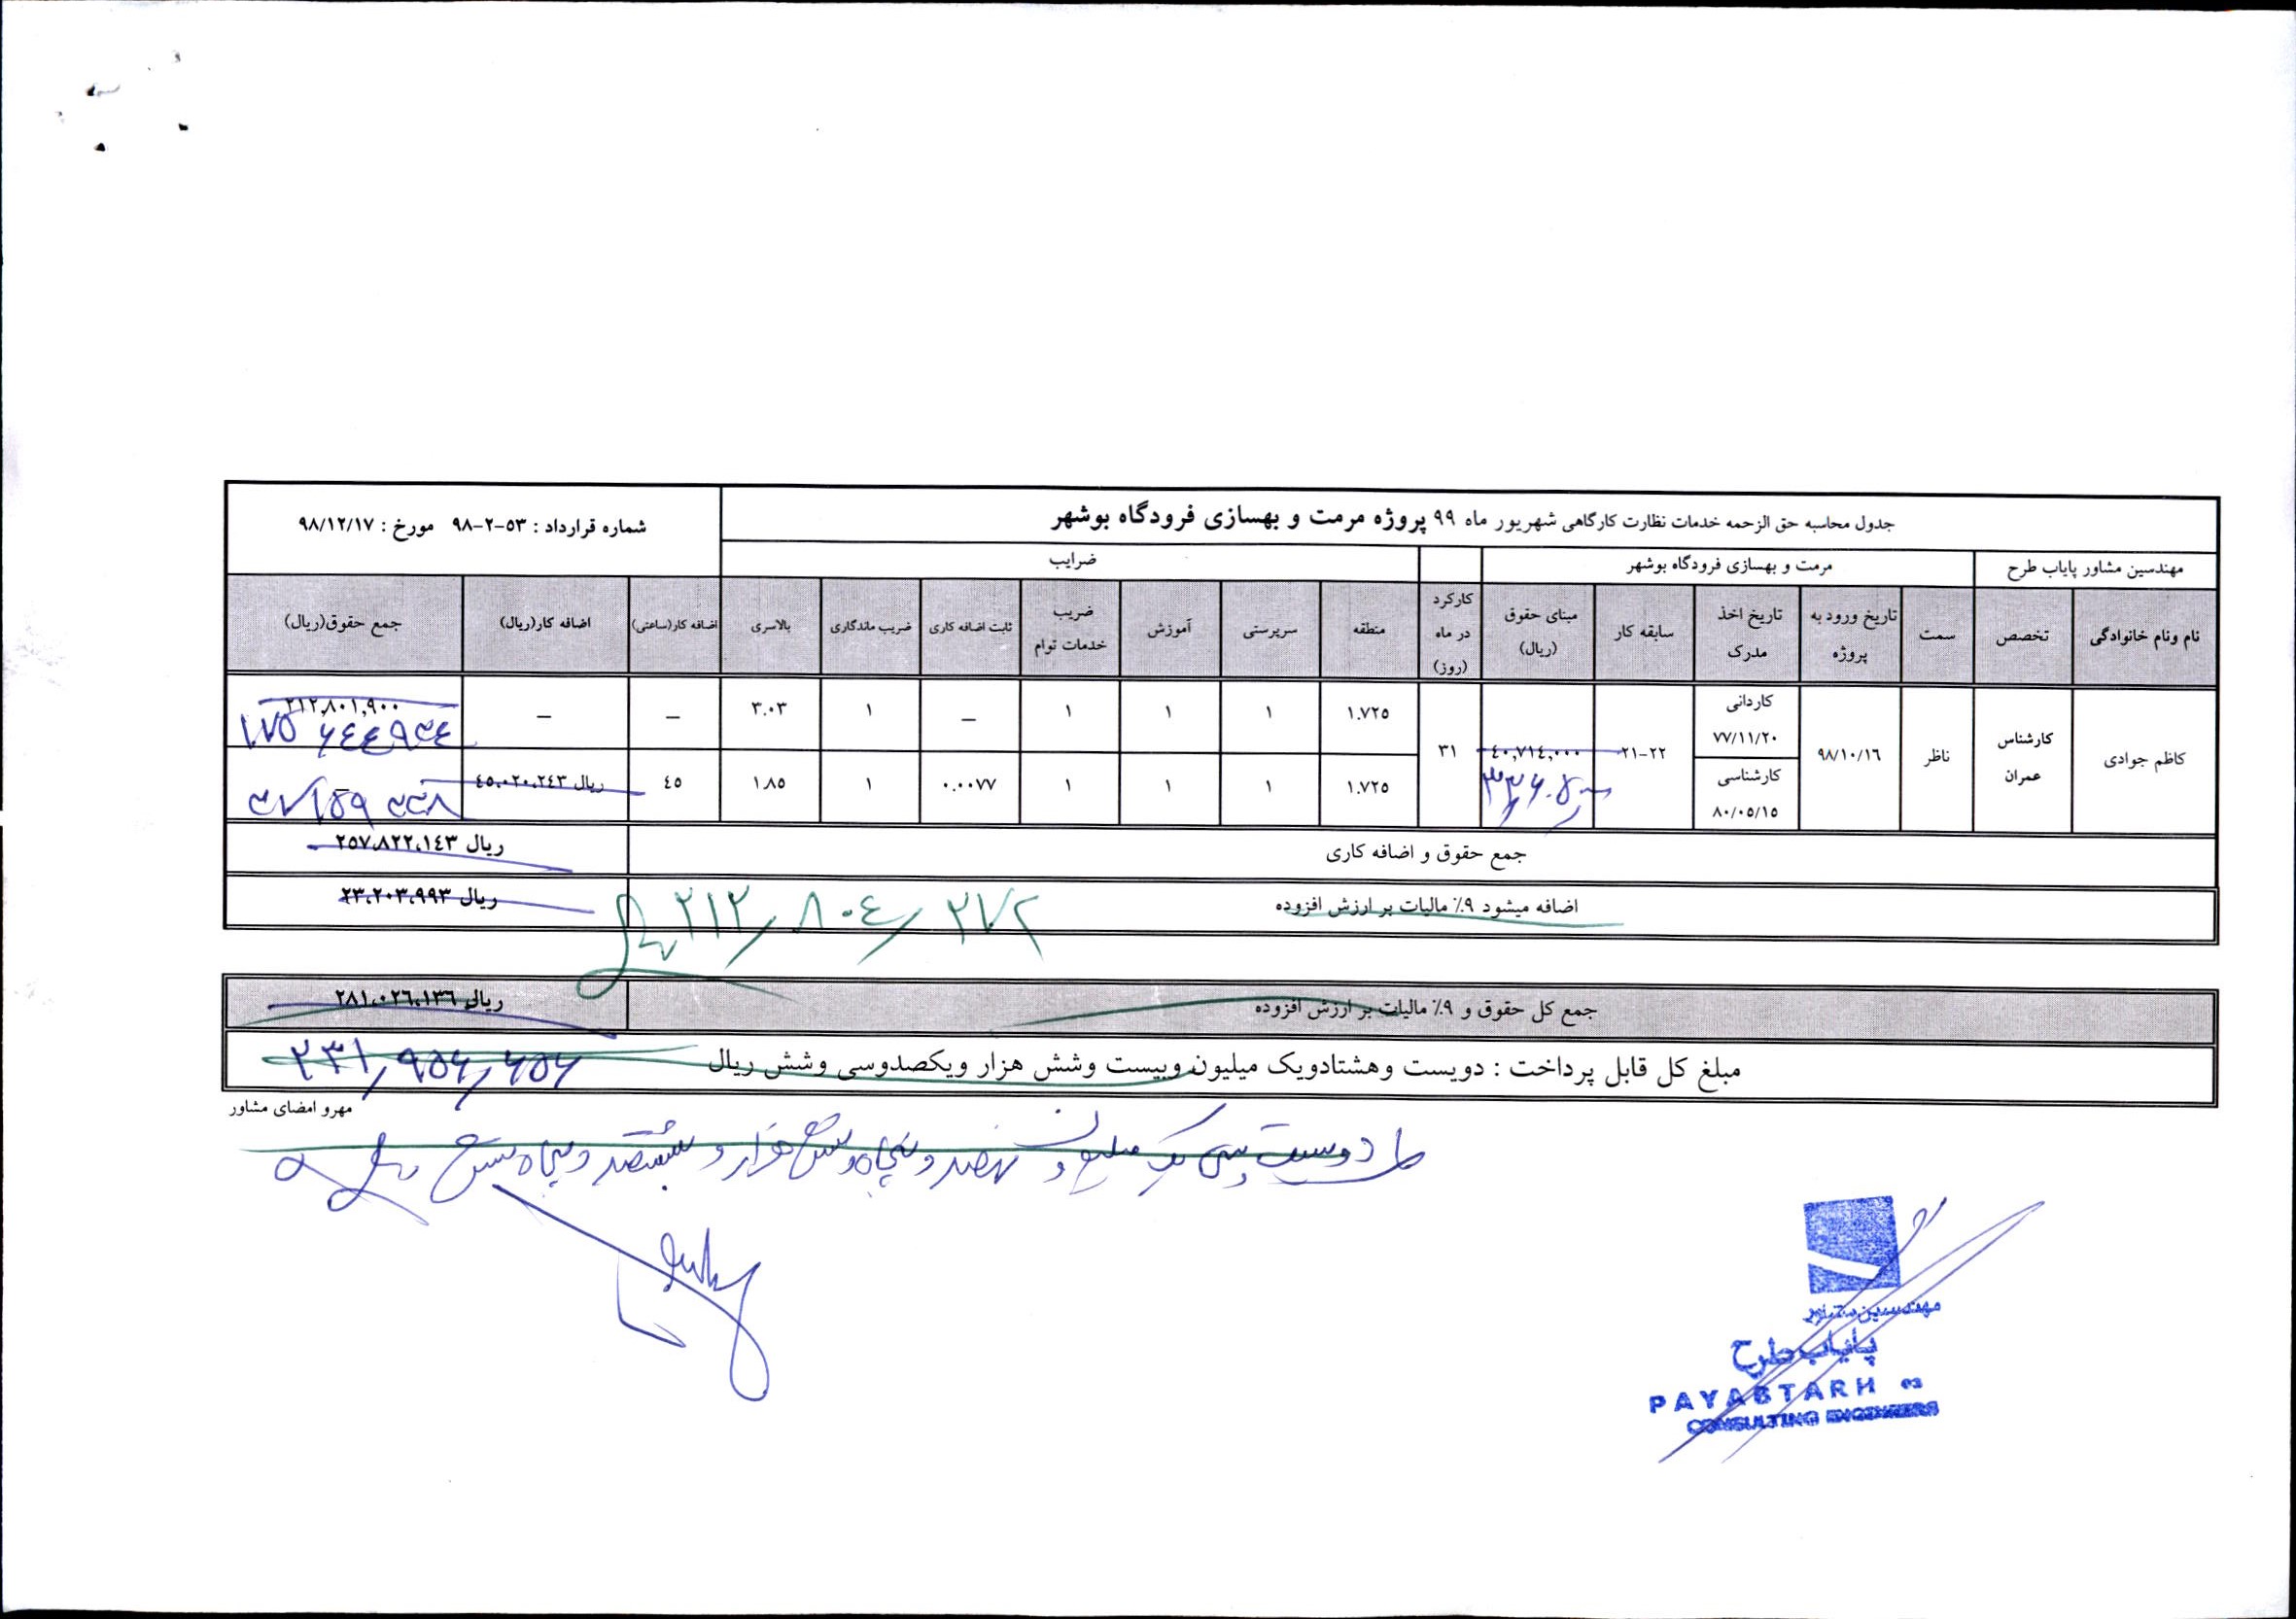 جدول محاسبه حق الزحمه خدمات نظارت کارگاهی شهریور ماه ۹۹ پروژه مرمت و بهسازی فرودگاه بوشهر
شماره قرارداد : ۵۳-۲-۹۸ مورخ : ۹۸/۱۲/۱۷
مهندسین مشاور پایاب طرح مرمت و بهسازی فرودگاه بوشهر ضرایب
نام ونام خانوادگی تخصص سمت تاریخ ورود به پروژه تاریخ اخذ مدرک سابقه کار مبنای حقوق (ریال) کارکرد در ماه (روز) منطقه سرپرستی آموزش ضریب خدمات توام ثابت اضافه کاری ضریب ماندگاری بالاسری اضافه کار(ساعتی) اضافه کار(ریال) جمع حقوق(ریال)
کاظم جوادی کارشناس عمران ناظر ۹۸/۱۰/۱۶ کاردانی ۷۷/۱۱/۲۰ ۲۱-۲۲ ٤۰,۷۱٤,۰۰۰ ۳۱ ۱.۷۲۵ ۱ ۱ ۱ _ ۱ ۳.۰۳ _ _ ۲۱۲,۸۰۱,۹۰۰
۱۷۵ ۶٤٤ ۹۳٤
کارشناسی ۸۰/۰۵/۱۵ ۱.۷۲۵ ۱ ۱ ۱ ۰.۰۰۷۷ ۱ ۱.۸۵ ٤۵ ریال ٤۵،۰۲۰،۲٤۳
۳۷۱۵۹ ۳۳۸
جمع حقوق و اضافه کاری ریال ۲۵۷،۸۲۲،۱٤۳
اضافه میشود ۹٪ مالیات بر ارزش افزوده ریال ۲۳،۲۰۳،۹۹۳
۲۱۲/۸۰٤/۲۷۲
جمع کل حقوق و ۹٪ مالیات بر ارزش افزوده ریال ۲۸۱،۰۲٦،۱۳٦
مبلغ کل قابل پرداخت : دویست وهشتادویک میلیون وبیست وشش هزار ویکصدوسی وشش ریال ۲۳۱,۹۵۶,۶۵۶
مهرو امضای مشاور
دویست وسی یک میلیون و نهصد و پنجاه و شش هزار و ششصد و پنجاه شش ریال
مهندسین مشاور
پایاب طرح
PAYABTARH
CONSULTING ENGINEERS